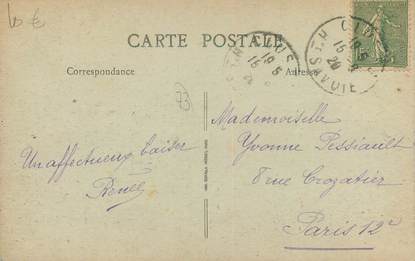 10 €
CARTE POSTALE
Correspondance
Adresse
73
Un affectueux baiser
Renée
Mademoiselle
Yvonne Pessiault
8 rue Crozatier
Paris 12e